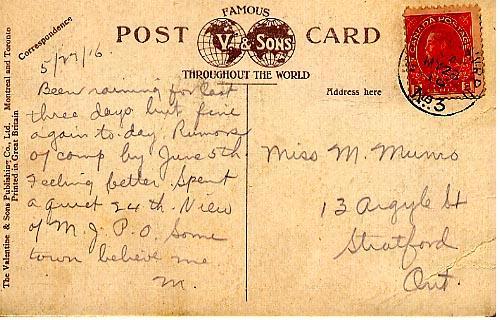 FAMOUS
POST V. & SONS CARD
THROUGHOUT THE WORLD
CANADA POSTAGE
No 3
Correspondence
Address here
5/27/16.
Been raining for last
three days but fine
again to-day. Rumors
of camp by June 5th.
Feeling better. Spent
a quiet 24th. View
of M. J. P.O. Some
town believe me
M.
Miss M. Munro
13 Argyle St
Stratford
Ont.
The Valentine & Sons Publishing Co., Ltd., Montreal and Toronto
Printed in Great Britain